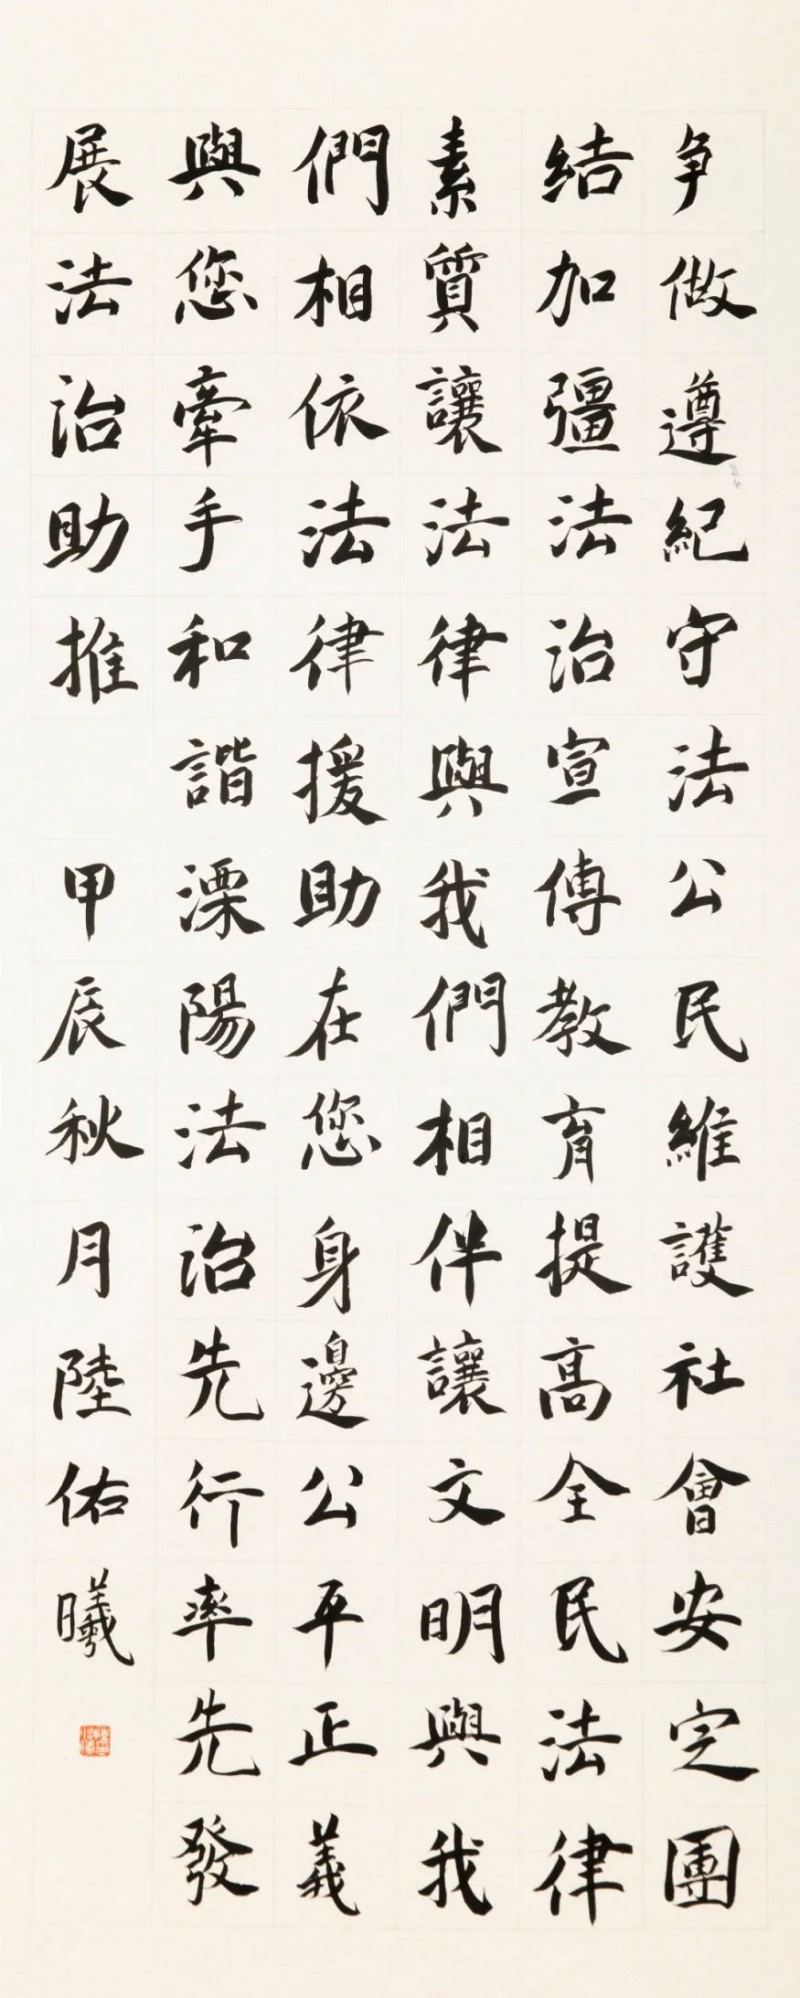 争做遵紀守法公民維護社會安定團
结加彊法治宣傳教育提高全民法律
素質讓法律與我們相伴讓文明與我
們相依法律援助在您身邊公平正義
與您牽手和諧溧陽法治先行率先發
展法治助推
甲辰秋月陸佑曦